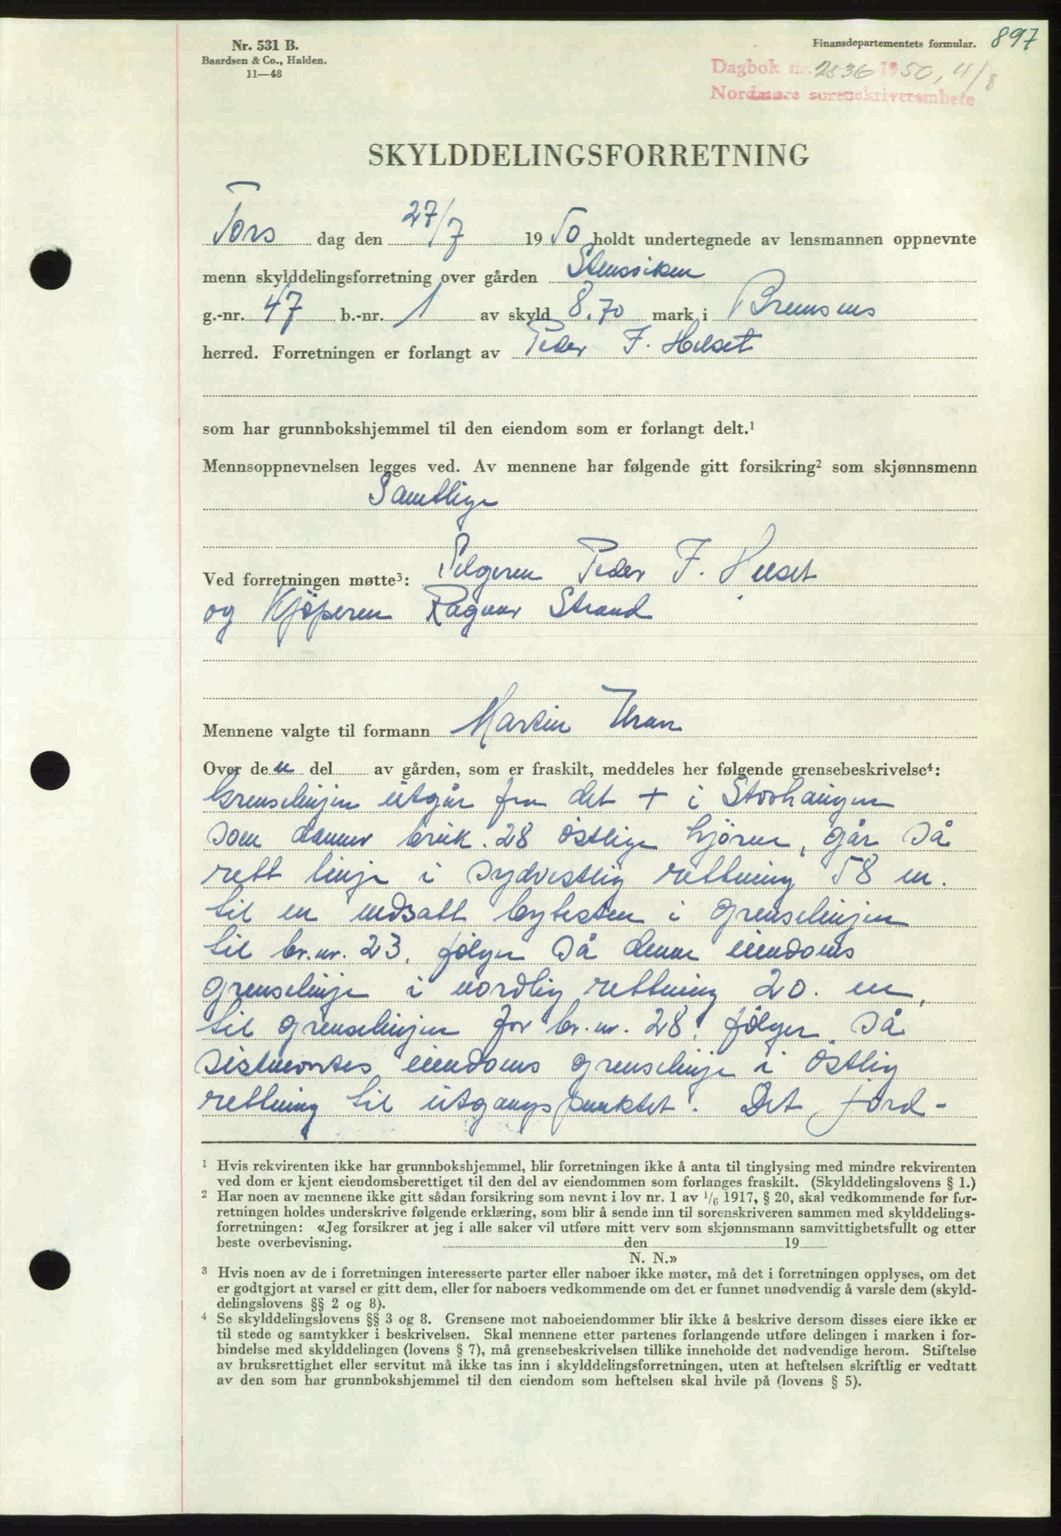 Nr. 531 B.
Baardsen & Co., Halden.
11—48
Finansdepartementets formular. 897
Dagbok nr. 2536 1950, 11/8
Nordmøre sorenskriverembete
SKYLDDELINGSFORRETNING
Tors dag den 27/7 1950 holdt undertegnede av lensmannen oppnevnte
menn skylddelingsforretning over gården Stensviken
g.-nr. 47 b.-nr. 1 av skyld 8,70 mark i Bremsnes
herred. Forretningen er forlangt av Peder J. Helset
som har grunnbokshjemmel til den eiendom som er forlangt delt.¹
Mennsoppnevnelsen legges ved. Av mennene har følgende gitt forsikring² som skjønnsmenn
Samtlige
Ved forretningen møtte³: Selgeren Peder J. Helset
og Kjøperen Ragnar Strand
Mennene valgte til formann Martin
Over den del av gården, som er fraskilt, meddeles her følgende grensebeskrivelse⁴:
Grenselinjen utgår fra det + i Storhaugen
som danner bruk. 28 østlige hjørne, går så
rett linje i sydvestlig rettning 58 m.
til en nedsatt bytesten i grenselinjen
til br.nr. 23, følger så denne eiendoms
grenselinje i nordlig rettning 20. m,
til grenselinjen for br.nr. 28, følger så
sistnevntes eiendoms grenselinje i østlig
rettning til utgangspunktet. Det jord-
¹ Hvis rekvirenten ikke har grunnbokshjemmel, blir forretningen ikke å anta til tinglysing med mindre rekvirenten
ved dom er kjent eiendomsberettiget til den del av eiendommen som forlanges fraskilt. (Skylddelingslovens § 1.)
² Har noen av mennene ikke gitt sådan forsikring som nevnt i lov nr. 1 av 1/6 1917, § 20, skal vedkommende før for-
retningen holdes underskrive følgende erklæring, som blir å sende inn til sorenskriveren sammen med skylddelings-
forretningen: «Jeg forsikrer at jeg i alle saker vil utføre mitt verv som skjønnsmann samvittighetsfullt og etter
beste overbevisning. den 19
N. N.»
³ Hvis noen av de i forretningen interesserte parter eller naboer ikke møter, må det i forretningen opplyses, om det
er godtgjort at varsel er gitt dem, eller for naboers vedkommende om det er funnet unødvendig å varsle dem (skyld-
delingslovens §§ 2 og 8).
⁴ Se skylddelingslovens §§ 3 og 8. Grensene mot naboeiendommer blir ikke å beskrive dersom disses eiere ikke er
til stede og samtykker i beskrivelsen. Skal mennene etter partenes forlangende utføre delingen i marken i for-
bindelse med skylddelingen (lovens § 7), må grensebeskrivelsen tillike inneholde det nødvendige herom. Stiftelse
av bruksrettighet eller servitut må ikke tas inn i skylddelingsforretningen, uten at heftelsen skriftlig er vedtatt
av den som har grunnbokshjemmel til den eiendom som heftelsen skal hvile på (lovens § 5).